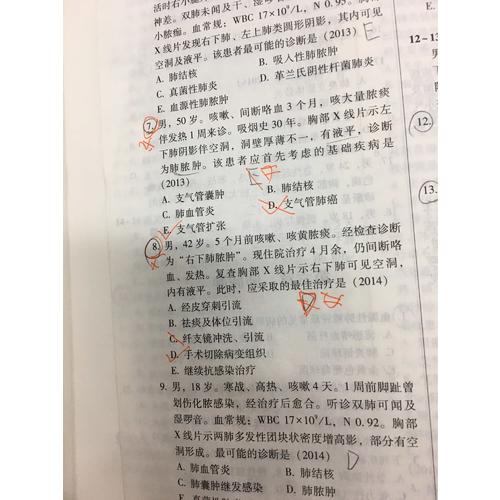 活时右小腿
神差。双肺未闻及干、湿
小脓痂。血常规:WBC 17×10⁹/L,N 0.95。胸部
X线片发现右下肺、左上肺类圆形阴影,其内可见
空洞及液平。该患者最可能的诊断是(2013) E
A. 肺结核 B. 吸人性肺脓肿
C. 真菌性肺炎 D. 革兰氏阴性杆菌肺炎
E. 血源性肺脓肿
7. 男,50岁。咳嗽、间断咯血3个月,咳大量脓痰
伴发热1周来诊。吸烟史30年。胸部X线片示左
下肺阴影伴空洞,洞壁厚薄不一,有液平,诊断
为肺脓肿。该患者应首先考虑的基础疾病是
(2013)
A. 支气管囊肿 B. 肺结核
C. 肺血管炎 D. 支气管肺癌
E. 支气管扩张
8. 男,42岁。5个月前咳嗽、咳黄脓痰。经检查诊断
为“右下肺脓肿”。现住院治疗4月余,仍间断咯
血、发热。复查胸部X线片示右下肺可见空洞,
内有液平。此时,应采取的最佳治疗是(2014)
A. 经皮穿刺引流
B. 祛痰及体位引流
C. 纤支镜冲洗、引流
D. 手术切除病变组织
E. 继续抗感染治疗
9. 男,18岁。寒战、高热、咳嗽4天。1周前脚趾曾
划伤化脓感染,经治疗后愈合。听诊双肺可闻及
湿啰音。血常规:WBC 17×10⁹/L,N 0.92。胸部
X线片示两肺多发性团块状密度增高影,部分有空
洞形成。最可能的诊断是(2014) D
A. 肺血管炎 B. 肺结核
C. 肺囊肿继发感染 D. 肺脓肿
E. 真菌性肺炎
12-13
12.
13.